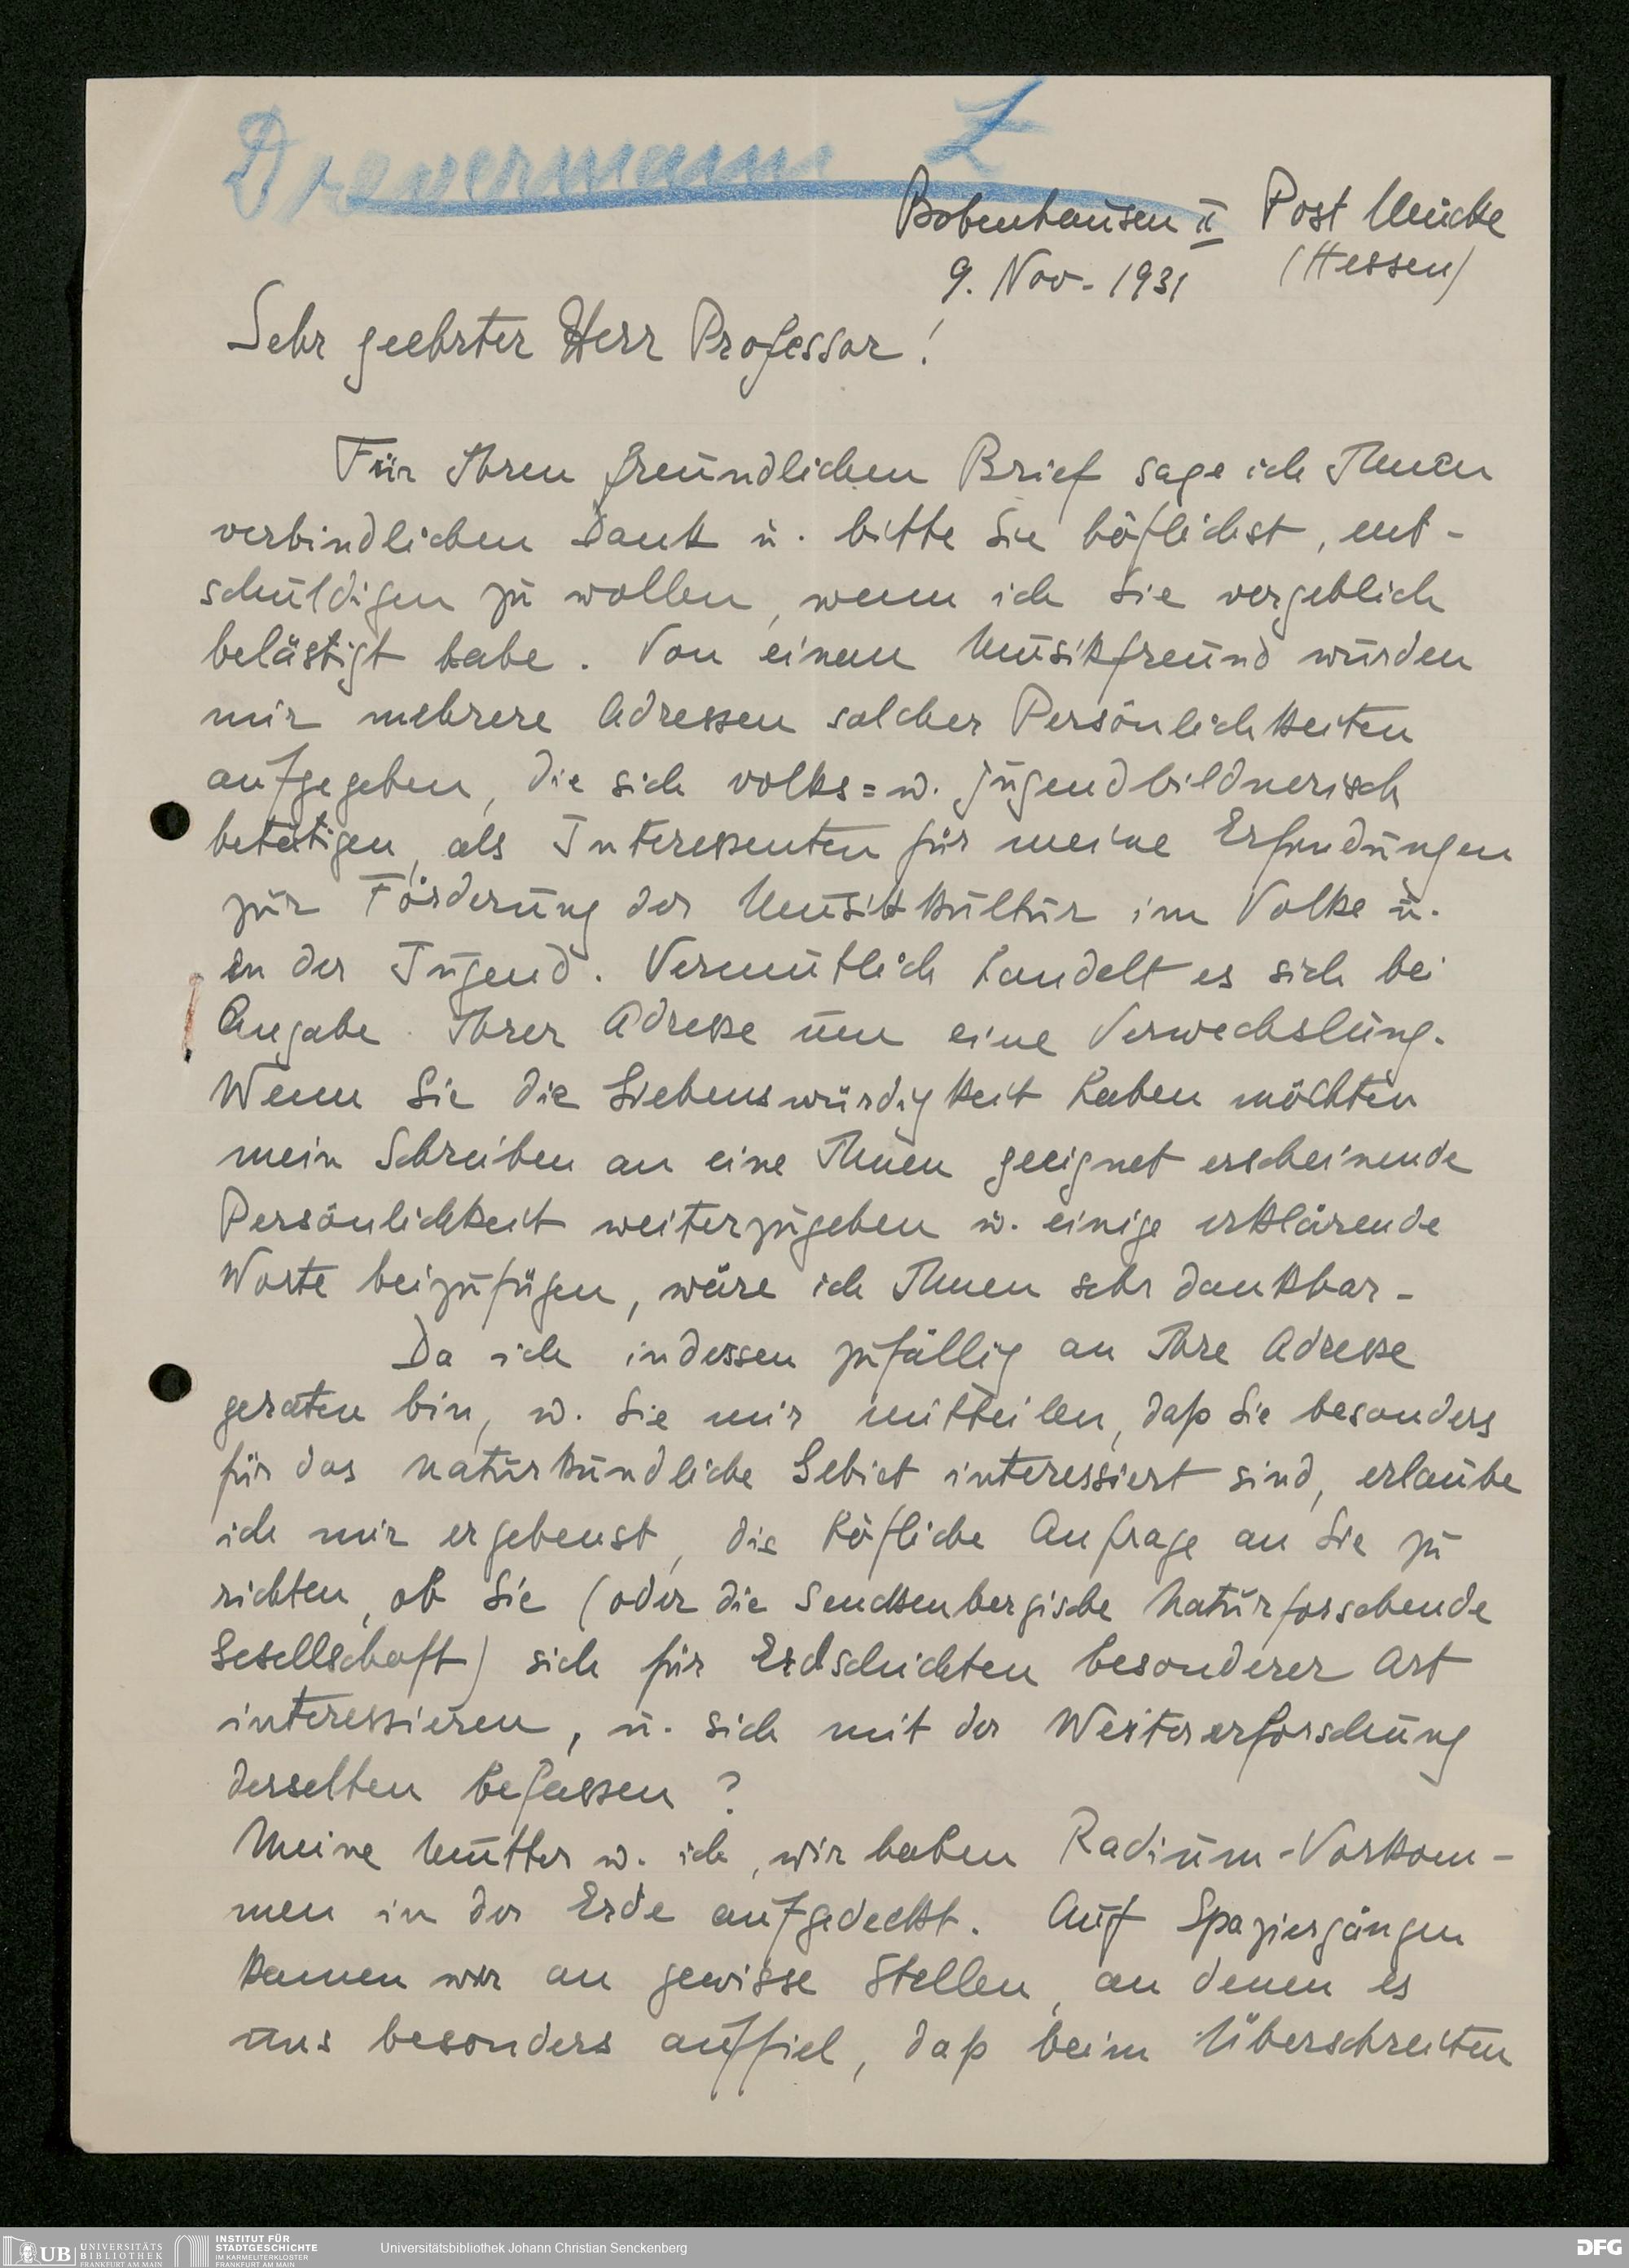 Drevermann L
Bobenhausen II Post Mücke
9. Nov. 1931 (Hessen)
Sehr geehrter Herr Professor!
Für Ihren freundlichen Brief sage ich Ihnen
verbindlichen Dank u. bitte Sie höflichst, ent-
schuldigen zu wollen, wenn ich Sie vergeblich
belästigt habe. Von einem Musikfreund wurden
mir mehrere Adressen solcher Persönlichkeiten
aufgegeben, die sich volks= u. jugendbildnerisch
betätigen, als Interessenten für meine Erfindungen
zur Förderung der Musikkultur im Volke u.
in der Jugend. Vermutlich handelt es sich bei
Angabe Ihrer Adresse um eine Verwechslung.
Wenn Sie die Liebenswürdigkeit haben möchten
mein Schreiben an eine Ihnen geeignet erscheinende
Persönlichkeit weiterzugeben u. einige erklärende
Worte beizufügen, wäre ich Ihnen sehr dankbar.
Da ich indessen zufällig an Ihre Adresse
geraten bin, u. Sie mir mitteilen, daß Sie besonders
für das naturkundliche Gebiet interessiert sind, erlaube
ich mir ergebenst, die höfliche Anfrage an Sie zu
richten, ob Sie (oder die Senckenbergische Naturforschende
Gesellschaft) sich für Erdschichten besonderer Art
interessieren, u. sich mit der Weitererforschung
derselben befassen?
Meine Mutter u. ich, wir haben Radium-Vorkom-
men in der Erde aufgedeckt. Auf Spaziergängen
kamen wir an gewisse Stellen, an denen es
uns besonders auffiel, daß beim Überschreiten
UB UNIVERSITÄTS
BIBLIOTHEK
FRANKFURT AM MAIN
INSTITUT FÜR
STADTGESCHICHTE
IM KARMELITERKLOSTER
FRANKFURT AM MAIN
Universitätsbibliothek Johann Christian Senckenberg
DFG